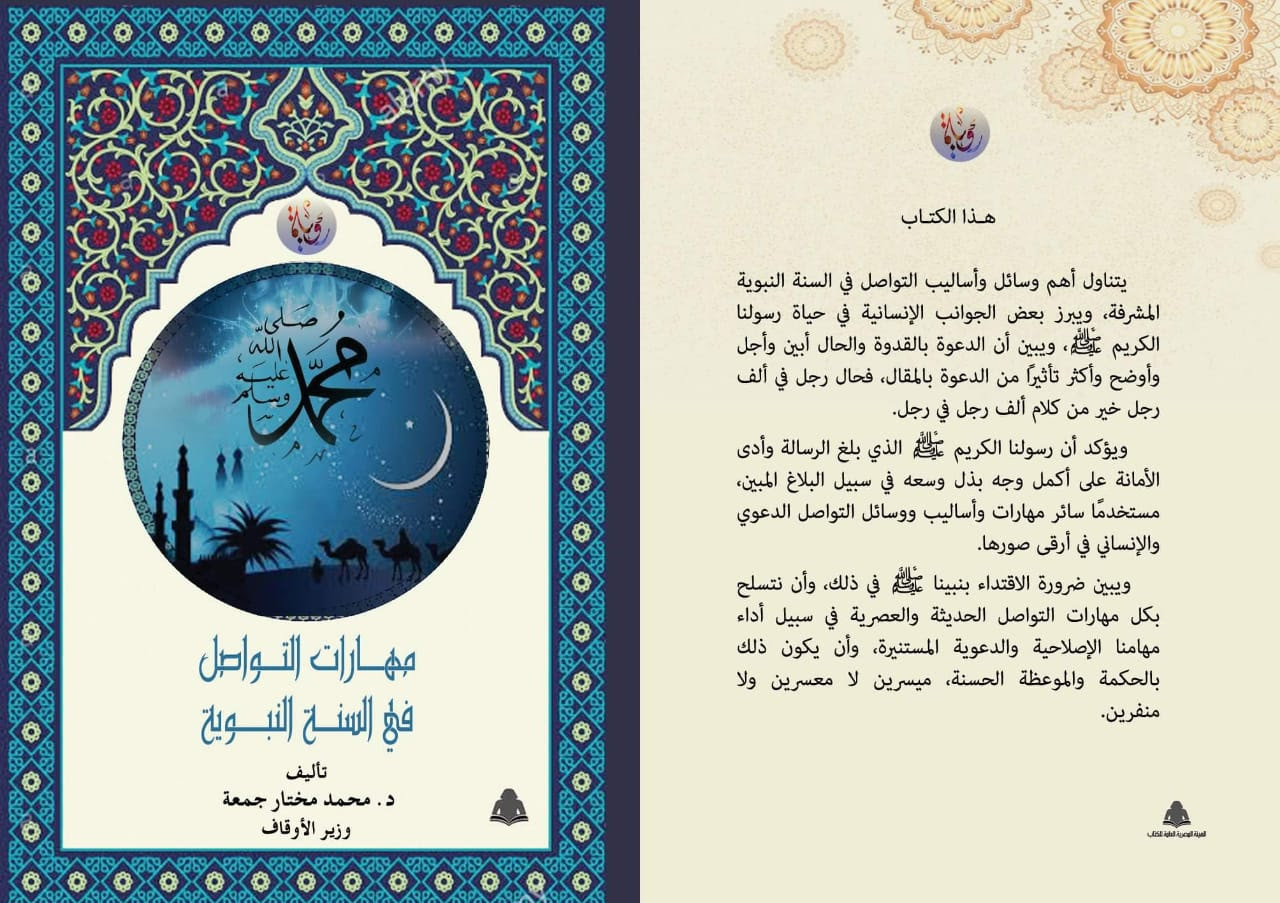 رؤية
صلى
الله
عليه
وسلم
محمد
مهارات التواصل
في السنة النبوية
تأليف
د. محمد مختار جمعة
وزير الأوقاف
alamy
a
a
a
a
رؤية
هذا الكتاب
يتناول أهم وسائل وأساليب التواصل في السنة النبوية
المشرفة، ويبرز بعض الجوانب الإنسانية في حياة رسولنا
الكريم ﷺ، ويبين أن الدعوة بالقدوة والحال أبين وأجل
وأوضح وأكثر تأثيرًا من الدعوة بالمقال، فحال رجل في ألف
رجل خير من كلام ألف رجل في رجل.
ويؤكد أن رسولنا الكريم ﷺ الذي بلغ الرسالة وأدى
الأمانة على أكمل وجه بذل وسعه في سبيل البلاغ المبين،
مستخدمًا سائر مهارات وأساليب ووسائل التواصل الدعوي
والإنساني في أرقى صورها.
ويبين ضرورة الاقتداء بنبينا ﷺ في ذلك، وأن نتسلح
بكل مهارات التواصل الحديثة والعصرية في سبيل أداء
مهامنا الإصلاحية والدعوية المستنيرة، وأن يكون ذلك
بالحكمة والموعظة الحسنة، ميسرين لا معسرين ولا
منفرين.
الهيئة المصرية العامة للكتاب